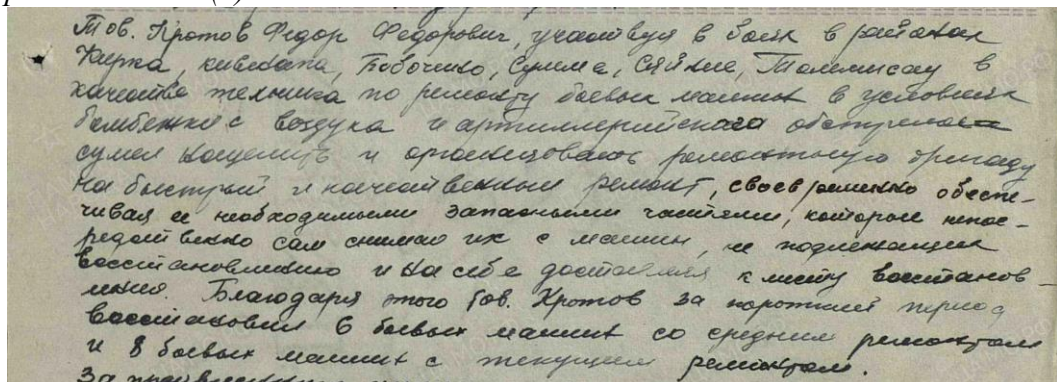 Тов. Кротов Федор Федорович, участвуя в боях в районах
Каука, кивеката, Бобочино, Сумма, Сяйние, Таммисау в
качестве техника по ремонту боевых машин в условиях
бомбежки с воздуха и артиллерийского обстрела
сумел нацелить и организовать ремонтную бригаду
на быстрый и качественный ремонт, своевременно обеспе-
чивая ее необходимыми запасными частями, которые непос-
редственно сам снимал их с машин, не подлежащих
восстановлению и на себе доставлял к месту восстанов-
ления. Благодаря этого тов. Кротов за короткий период
восстановил 6 боевых машин со средним ремонтом
и 8 боевых машин с текущим ремонтом.